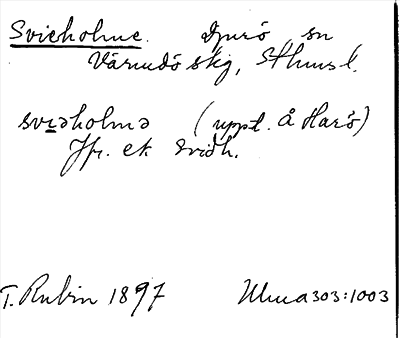 Svieholme. Djurö sn
Värmdö skg, Sthms l.
svɩəholmə (uppt. å Harö)
Jfr. ek svidh.
T. Rubin 1897 Ulma 303:1003